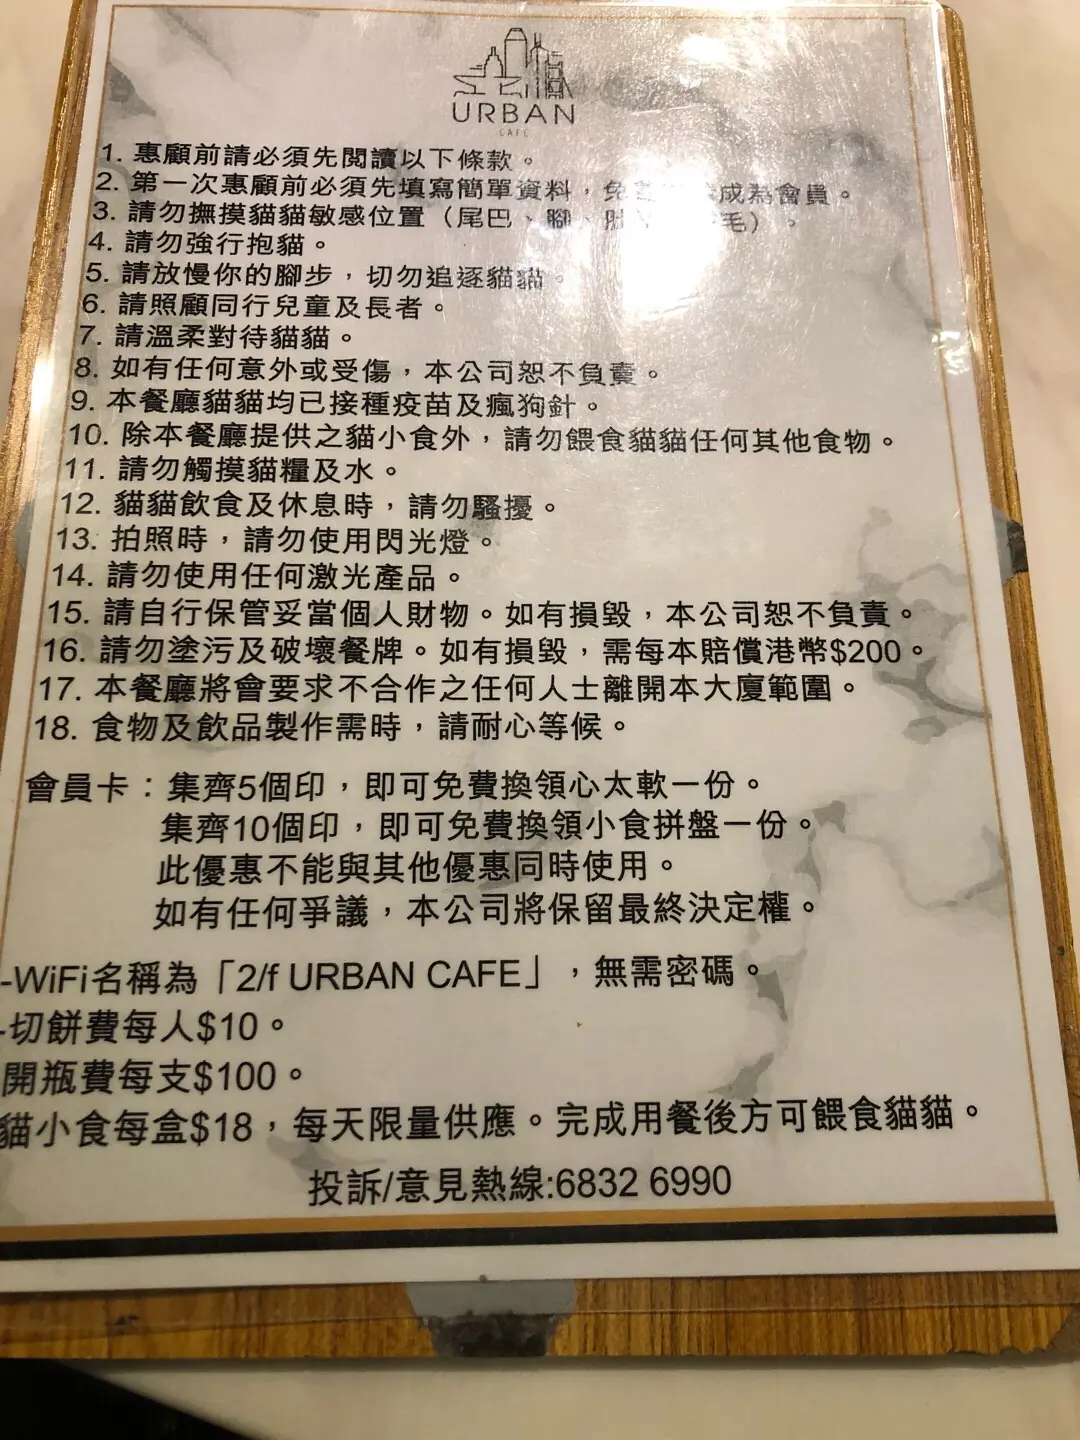 URBAN
CAFE
1. 惠顧前請必須先閱讀以下條款。
2. 第一次惠顧前必須先填寫簡單資料，免 成為會員。
3. 請勿撫摸貓貓敏感位置（尾巴、腳、 毛）。
4. 請勿強行抱貓。
5. 請放慢你的腳步，切勿追逐貓貓。
6. 請照顧同行兒童及長者。
7. 請溫柔對待貓貓。
8. 如有任何意外或受傷，本公司恕不負責。
9. 本餐廳貓貓均已接種疫苗及瘋狗針。
10. 除本餐廳提供之貓小食外，請勿餵食貓貓任何其他食物。
11. 請勿觸摸貓糧及水。
12. 貓貓飲食及休息時，請勿騷擾。
13. 拍照時，請勿使用閃光燈。
14. 請勿使用任何激光產品。
15. 請自行保管妥當個人財物。如有損毀，本公司恕不負責。
16. 請勿塗污及破壞餐牌。如有損毀，需每本賠償港幣$200。
17. 本餐廳將會要求不合作之任何人士離開本大廈範圍。
18. 食物及飲品製作需時，請耐心等候。
會員卡：集齊5個印，即可免費換領心太軟一份。
集齊10個印，即可免費換領小食拼盤一份。
此優惠不能與其他優惠同時使用。
如有任何爭議，本公司將保留最終決定權。
-WiFi名稱為「2/f URBAN CAFE」，無需密碼。
-切餅費每人$10。
開瓶費每支$100。
貓小食每盒$18，每天限量供應。完成用餐後方可餵食貓貓。
投訴/意見熱線:6832 6990